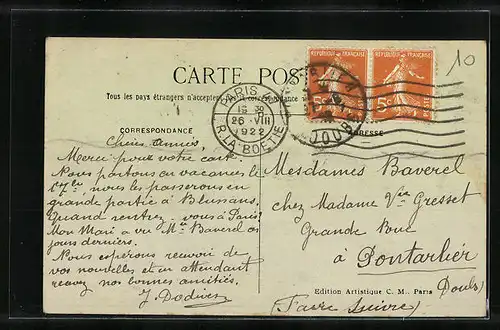 10
CARTE POS
RÉPUBLIQUE FRANÇAISE
RÉPUBLIQUE FRANÇAISE
Tous les pays étrangers n'acceptent correspondance
PARIS
26 - VIII
1922
R. LA BOETIE
DOUBS
CORRESPONDANCE
ADRESSE
Chères Amies,
Merci pour votre carte.
Nous partons en vacances le
1er 7bre, nous les passerons en
grande partie à Blussans,
Quand rentrez-vous à Paris?
Mon Mari a vu Mr Baverel ces
jours derniers.
Nous espérons recevoir de
vos nouvelles et en attendant
recevez nos bonnes amitiés.
J. Dodivers
Mesdames Baverel
chez Madame Vve Gresset
Grande Rue
à Pontarlier
Doubs
(Faire Suivre)
Edition Artistique C. M., Paris